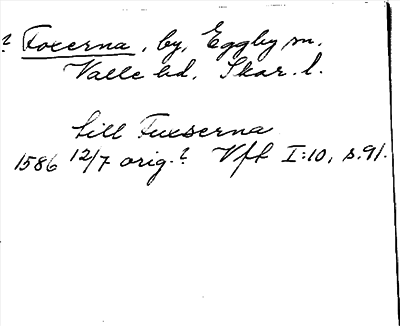 ? Foxerna, by, Eggby sn.
Valle hd. Skar. l.
till Fuxserna
1586 12/7 orig.? Vft I:10, s.91.